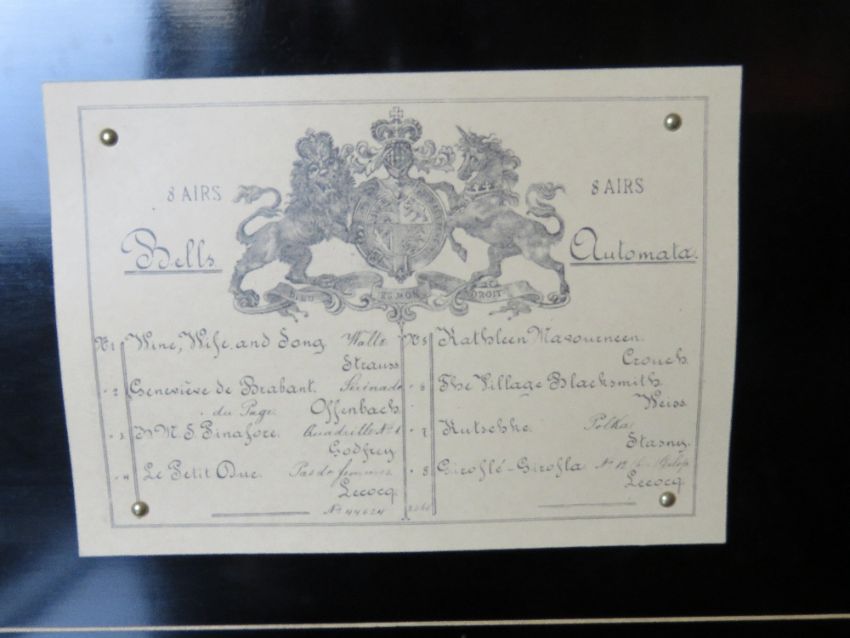 8 AIRS
8 AIRS
Bells.
Automata.
DIEU ET MON DROIT
No 1 Wine, Wife and Song Waltz
Strauss
" 2 Geneviève de Brabant. Sérénade
du Page. Offenbach
" 3 H.M.S. Pinafore. Quadrille No 1
Godfrey
" 4 Le Petit Duc. Pas de femmes
Lecocq.
No 5 Kathleen Mavourneen.
Crouch.
" 6 The Village Blacksmith
Weiss
" 7 Kutschke Polka
Stasny.
" 8 Giroflé-Girofla No 12 Galop
Lecocq.
No 44624